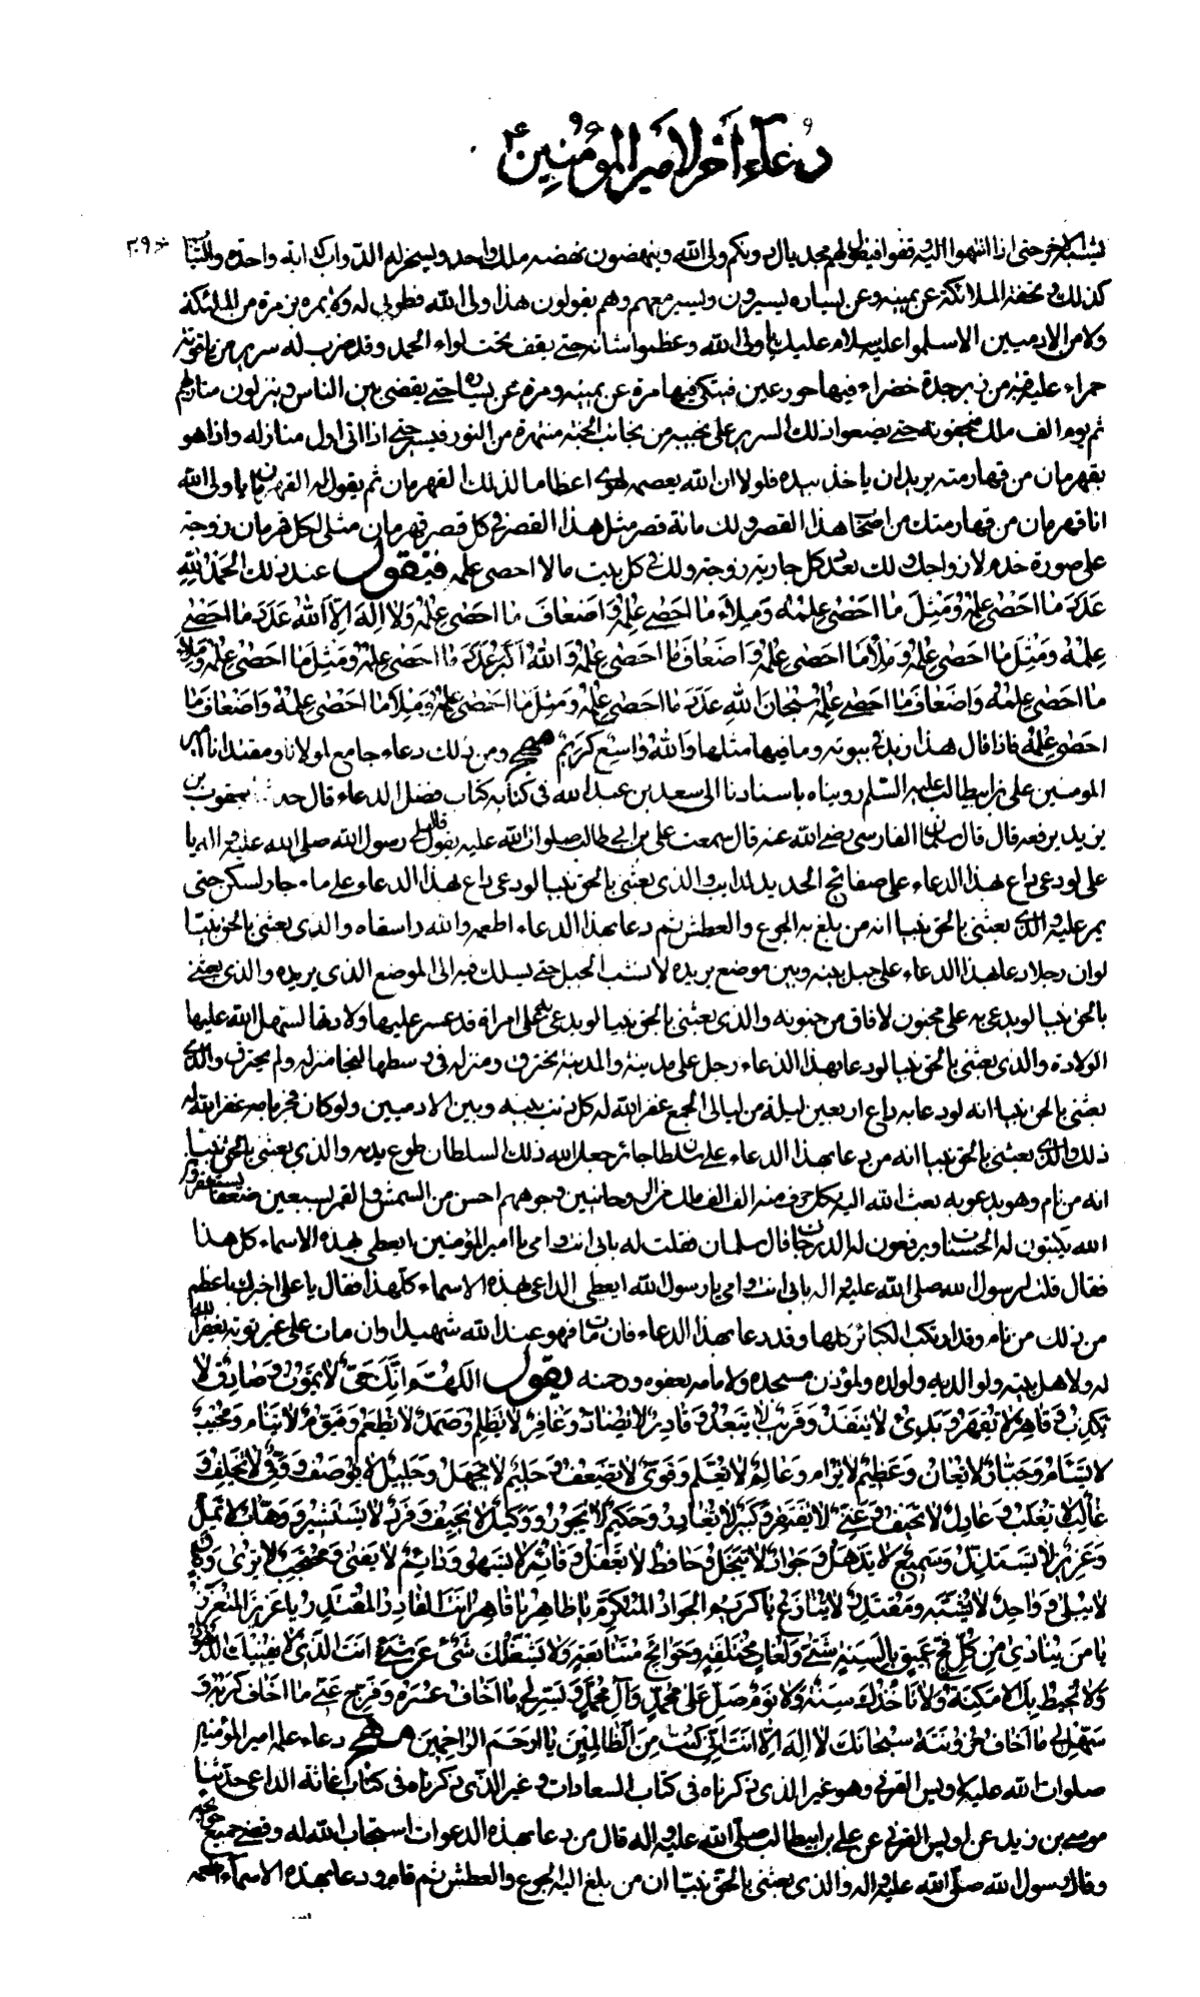 دُعَآءِ اَخَر لاَميرِ المُؤمُنِين ع
٢٠٩
اخر حتى اذا انتهوا اليه وقفوا فيقول لهم جبريل دونكم ولى الله وينهضون نهضه ملك واحد ويسخر له الدواب كدابه واحدة
كذلك وتحفة الملائكة عن يمينه وعن يساره يسيرون ويسير معهم وهم يقولون هذا ولى الله فطوبى له ولا يمر بزمرة من الملئكة
ولا من الادميين الا سلموا عليه سلام عليك يا ولى الله وعظموا شانه حتى يقف تحت لواء الحمد وقد ضرب له سرير من ياقوتة
حمراء عليه قبة من زبرجدة خضراء فيها حور عين فيتكى فيها مرة عن يمينه ومرة عن يساره حتى يقضى بين الناس وينزلون منازلهم
ثم يوم الف ملك فيحفونه حتى يضعوا ذلك السرير على نجيبه من نجائب الجنة من النور فيسير حتى اذا اتى اول منازله واذا هو
بقهرمان من قهارمته يريد ان ياخذ بيده فلولا ان الله يعصمه لهوى اعظاما لذلك القهرمان ثم يقول له القهرمان يا ولى الله
انا قهرمان من قهارمتك من اصحاب هذا القصر ولك مائة قصر مثل هذا القصر فى كل قصر قهرمان مثلى لكل قهرمان زوجة
على صورة خدم لازواجك ولك بعدد كل جارية زوجة ولك فى كل بيت ما لا احصى علمه فيتقول عند ذلك الحَمدُ لِلّهِ
عَدَدَ مَا احَصٰى عِلمُهُ وَمَثِلَ مَا احَصٰى عِلمُهُ وَمِلاءَ مَا احَصٰى عِلمُهُ وَاضعَافَ مَا احَصٰى عِلمُهُ وَلا اِلهَ اِلاّ اللهُ عَدَدَ مَا احَصٰى
عِلمُهُ وَمَثِلَ مَا احَصٰى عِلمُهُ وَمِلاَ مَا احَصٰى عِلمُهُ وَاضعَافَ مَا احَصٰى عِلمُهُ وَاللهُ اَكبرُ عَدَدَ مَا احَصٰى عِلمُهُ وَمَثِلَ مَا احَصٰى عِلمُهُ وَمِلاَ
مَا احَصٰى عِلمُهُ وَاضعَافَ مَا احَصٰى عِلمُهُ سُبحَانَ اللهِ عَدَدَ مَا احَصٰى عِلمُهُ وَمَثِلَ مَا احَصٰى عِلمُهُ وَمِلاَ مَا احَصٰى عِلمُهُ وَاضعَافَ مَا
احَصٰى عِلمُهُ فاذا قال هذا زيد فى بيوته وما فيها مثلها وَاللهُ وَاسِعٌ كَرَيمٌ ومن ذلك دعاء جامع لمولانا ومقتدانا امير
المومنين على بن ابيطالب عليه السّلم رويناه باسنادنا الى سعد بن عبد الله فى كتابه كتاب فضل الدعاء قال حدثنا يعقوب بن
يزيد يرفعه قال قال سلمان الفارسى رضى الله عنه قال سمعت على بن ابى طالب صلوات الله عليه يقول قال لى رسول الله صلى الله عليه واله يا
على لو دعى داع بهذا الدعاء على صفائح الحديد لذابت والذى بعثنى بالحق نبيا لو دعى داع بهذا الدعاء على ماء جار لسكن حتى
يمر عليه والذى بعثنى بالحق نبيا انه من بلغ به الجوع والعطش ثم دعا بهذا الدعاء اطعمه والله واسقاه والذى بعثنى بالحق نبيا
لو ان رجلا دعا بهذا الدعاء على جبل بينه وبين موضع يريده لانشعب الجبل حتى يسلك فيه الى الموضع الذى يريده والذى بعثنى
بالحق نبيا لو يدعى به على مجنون لافاق من جنونه والذى بعثنى بالحق نبيا لو يدعى به على امراة قد عسر عليها ولادتها لسهل الله عليها
الولادة والذى بعثنى بالحق نبيا لو دعا بهذا الدعاء رجل على مدينة والمدينة يحترق ومنزله فى وسطها لنجا منزله ولم يحترق والذى
بعثنى بالحق نبيا انه لو دعا به داع اربعين ليلة من ليالى الجمع غفر الله له كل ذنب بينه وبين الادميين ولو كان فجر بامه غفر الله له
ذلك والذى بعثنى بالحق نبيا انه من دعا بهذا الدعاء على سلطان جائر جعل الله ذلك السلطان طوع يديه والذى بعثنى بالحق نبيا
انه من نام وهو يدعو به بعث الله اليه بكل حرف منه الف الف ملك من الروحانيين وجوههم احسن من الشمس والقمر بسبعين ضعفا يستغفرون
الله يكتبون له الحسنات ويرفعون له الدرجات قال سلمان فقلت له بابى انت وامى يا امير المؤمنين ايعطى بهذه الاسماء كل هذا
فقال قلت لرسول الله صلى الله عليه واله بابى انت وامى يا رسول الله ايعطى الداعى بهذه الاسماء كلّ هذا فقال يا على اخبرك باعظم
من ذلك من نام وقد ارتكب الكبائر كلها وقد دعا بهذا الدعاء فان مات فهو عند الله شهيد وان مات على غير توبة يغفر الله
له ولاهل بيته ولوالديه ولولده ولمؤذن مسجده ولامامه بعفوه ورحمته يقول اللّهُمّ اِنَّكَ حَىٌّ لا يَموُتُ وَصَادِقٌ لا
تَكذِبُ وَقاهِرٌ لا تُقهَرُ وَبَدِىءٌ لا يَنفَدُ وَقَرِيبٌ لا يَبعُدُ وَقَادِرٌ لا تُضَادُّ وَغَافِرٌ لا تَظلِمُ وَصَمَدٌ لا تُطعَمُ وَقَيّوُمٌ لا يَنَامُ وَمُجيبٌ
لا يَسَاَمُ وَجَبّارٌ لا يُعَانُ وَعَظيمٌ لا يُرامُ وَعَالِمٌ لا يُعَلَّمُ وَقَوِىٌّ لا تَضعُفُ وَحَليمٌ لا تَجهَلُ وَجَليلٌ لا يُوصَفُ وَوَفِىٌّ لا تُخلِفُ وَ
غَالِبٌ لا تُغلَبُ وَعَادِلٌ لا تَحيفُ وَغَنِىٌّ لا تَفتَقِرُ وَكَبيرٌ لا تُغَادِرُ وَحَكيمٌ لا يَجوُرُ وَوَكيلٌ لا تَحيفُ وَفَردٌ لا يَستَشيرُ وَوَهّابٌ لا تَمِلُّ
وَعَزِيزٌ لا يَستَذِلُّ وَسَميعٌ لا يَذهَلُ وَجَوادٌ لا تَبخَلُ وَحَافِظٌ لا يَغفَلُ وَقَائِمٌ لا يَسهُو وَدَائِمٌ لا يَفنىٰ وَمُحتَجِبٌ لا يُرىٰ وَبَاقٍ
لا يَبلى وَوَاحِدٌ لا يُشبَّه وَمُقتَدِرٌ لا يُنَازَعُ يا كَريمُ الجَوادُ المُتكَرّمُ يا ظاهِرُ يا قَاهِرُ انتَ القَادِرُ المُقتَدِرُ يا عَزيزُ المُتَعَزّزُ
يا مَن يُنَادى مِن كُلِّ فَجٍّ عَميقٍ بِاَلسِنَةٍ شَتّى وَلُغاتٍ مُختَلِفَةٍ وَحَوائِجَ مُتَتَابِعَةٍ وَلا يَشغَلُكَ شَىءٌ عَن شَىءٍ انتَ الّذى لا يُفنيكَ الدّهُورُ
وَلا تُحيطُ بِكَ الامكِنَةُ وَلا تَاخُذُكَ سِنَةٌ وَلا نَومٌ صَلِّ عَلى مُحَمّدٍ وَآلِ مُحَمّدٍ وَيَسّر لى ما اخَافُ عُسرَهُ وَفَرّج عَنّى ما اخَافُ كَربَهُ وَ
سَهّل لى ما اخَافُ حُزُونَتَهُ سُبحَانَكَ لا اِلهَ اِلاّ انتَ اِنّى كُنتُ مِنَ الظّالِمينَ يا ارحَمَ الرّاحِمينَ دعاء علمه امير المؤمنين
صلوات الله عليه لاويس القرنى وهو غير الذى ذكرناه فى كتاب السعادات وغير الذى ذكرناه فى كتاب اغاثة الداعى حدثنا
موسى بن زيد عن اويس القرنى عن على بن ابيطالب صلّى الله عليه واله قال من دعا بهذه الدعوات استجاب الله له وقضى جميع حوائجه
وقال رسول الله صلّى الله عليه واله والذى بعثنى بالحق نبيّا ان من بلغ اليه الجوع والعطش ثم قام ودعا بهذه الاسمآء اطعمه